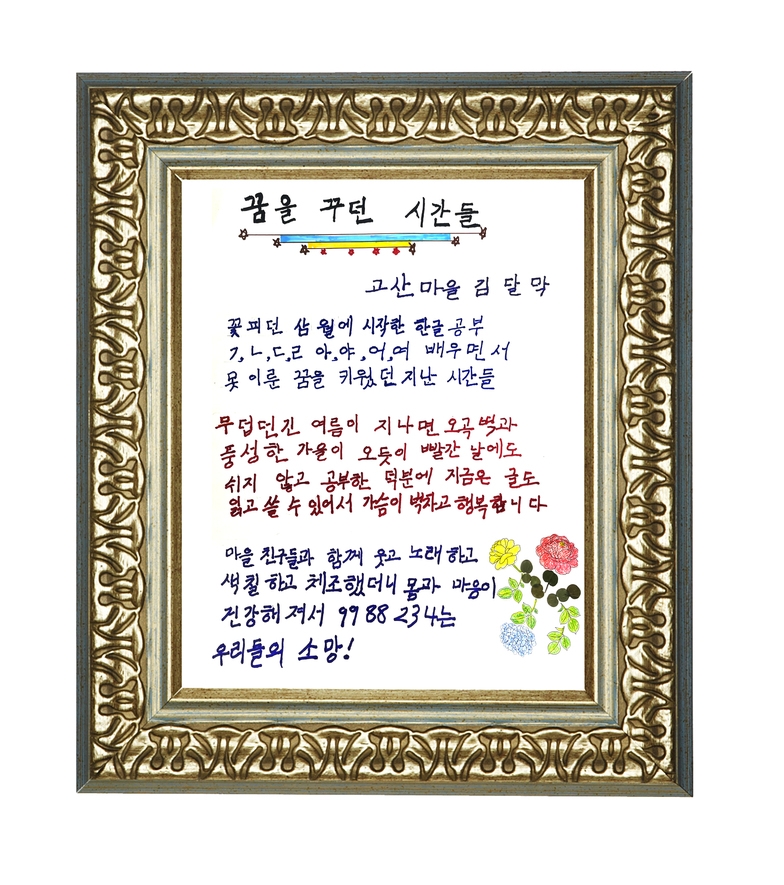 꿈을 꾸던 시간들
고산마을 김달막
꽃피던 삼월에 시작한 한글공부
ㄱ,ㄴ,ㄷ,ㄹ 아,야,어,여 배우면서
못이룬 꿈을 키웠던 지난 시간들
무덥던긴 여름이 지나면 오곡벡과
풍성한 가을이 오듯이 빨간 날에도
쉬지 않고 공부한 덕분에 지금은 글도
읽고 쓸 수 있어서 가슴이 벅차고 행복합니다
마을 친구들과 함께 웃고 노래하고
색칠하고 체조했더니 몸과 마음이
건강해져서 9988234는
우리들의 소망!